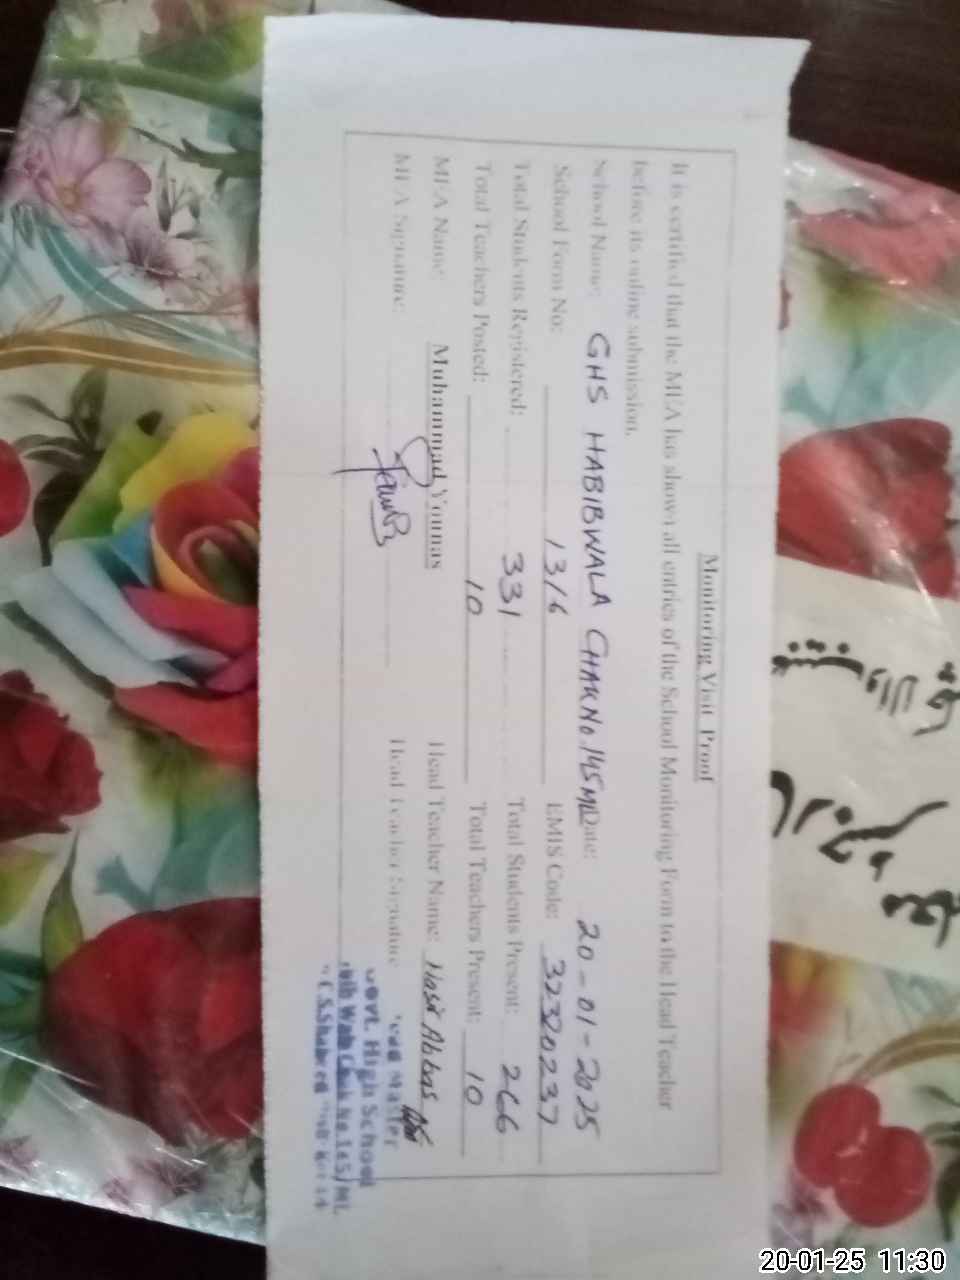 Monitoring Visit Proof
It is certified that the MEA has shown all entries of the School Monitoring Form to the Head Teacher
before its online submission.
School Name: GHS HABIBWALA CHAK No.145ML Date: 20-01-2025
School Form No: 1316 EMIS Code: 32320237
Total Students Registered: 331 Total Students Present: 266
Total Teachers Posted: 10 Total Teachers Present: 10
MEA Name: Muhammad Younas Head Teacher Name: Nasir Abbas
MEA Signature: Head Teacher Signature
Head Master
Govt. High School
Chak No.145/ML
20-01-25 11:30